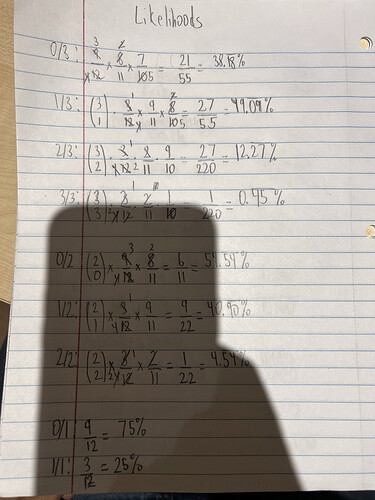 Likelihoods
0/3: 9/12 × 8/11 × 7/10 = 21/55 = 38.18%
1/3: (3 1) · 3/12 × 9/11 × 8/10 = 27/55 = 49.09%
2/3: (3 2) · 3/12 · 2/11 · 9/10 = 27/220 = 12.27%
3/3: (3 3) 3/12 · 2/11 · 1/10 = 1/220 = 0.45%
0/2: (2 0) × 9/12 × 8/11 = 6/11 = 54.54%
1/2: (2 1) × 3/12 × 9/11 = 9/22 = 40.90%
2/2: (2 2) × 3/12 × 2/11 = 1/22 = 4.54%
0/1: 9/12 = 75%
1/1: 3/12 = 25%